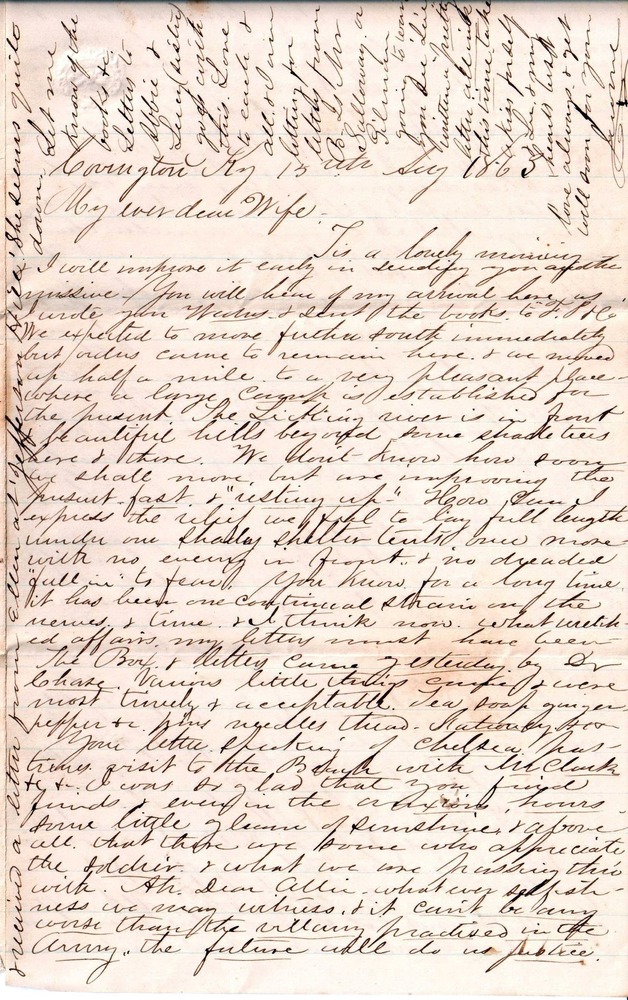 Covington Ky 15th Aug 1863
My ever dear Wife.
Tis a lovely morning
I will improve it early in sending you another
missive. You will hear of my arrival here as
I wrote you & sent the books to
We expected to move futher south immediately
but orders came to remain here. & we moved
up half a mile to a very pleasant place
where a large camp is established for
the present The Licking river is in front
& beautiful hills beyond some shade trees
here & there. We don't know how soon
we shall move, but are improving the
present fast & "resting up." How can I
express the relief we feel to lay full length
under our shady shelter tents once more
with no enemy in front, & no dreaded
"fall in" to fear. You know for a long time
it has been one continual strain on the
nerves & time. & I think now what wretch-
ed affairs my letters must have been
The Box & letters came yesterday by Dr
Chase. Various little things came & were
most timely & acceptable. Tea soap ginger
pepper &c pins needles thread. Stationery &c
Your letter speaking of Chelsea, pas-
times visit to the Beach with Mr Clark
&c &c. I was so glad that you find
friends & even in the anxious hours
some little gleam of sunshine, & above
all that there are some who appreciate
the soldier, & what we are passing thro
with. Ah. Dear Allie. whatever selfish-
ness we may witness. & it can't be any
worse than the villainy practised in the
Army, the future will do us justice.
& received a letter from Ellen at Jefferson Hill! She seems quite
down.
Let me
know of the
books &c
Letters to
Abbie &
Lucy sister
goes with
this. Love
to each &
all. & I am
letting for
letters from
Mr
Holloway. a
Gilman
going to
you see I've
written a pretty
letter
this time
love always & get
well soon for your